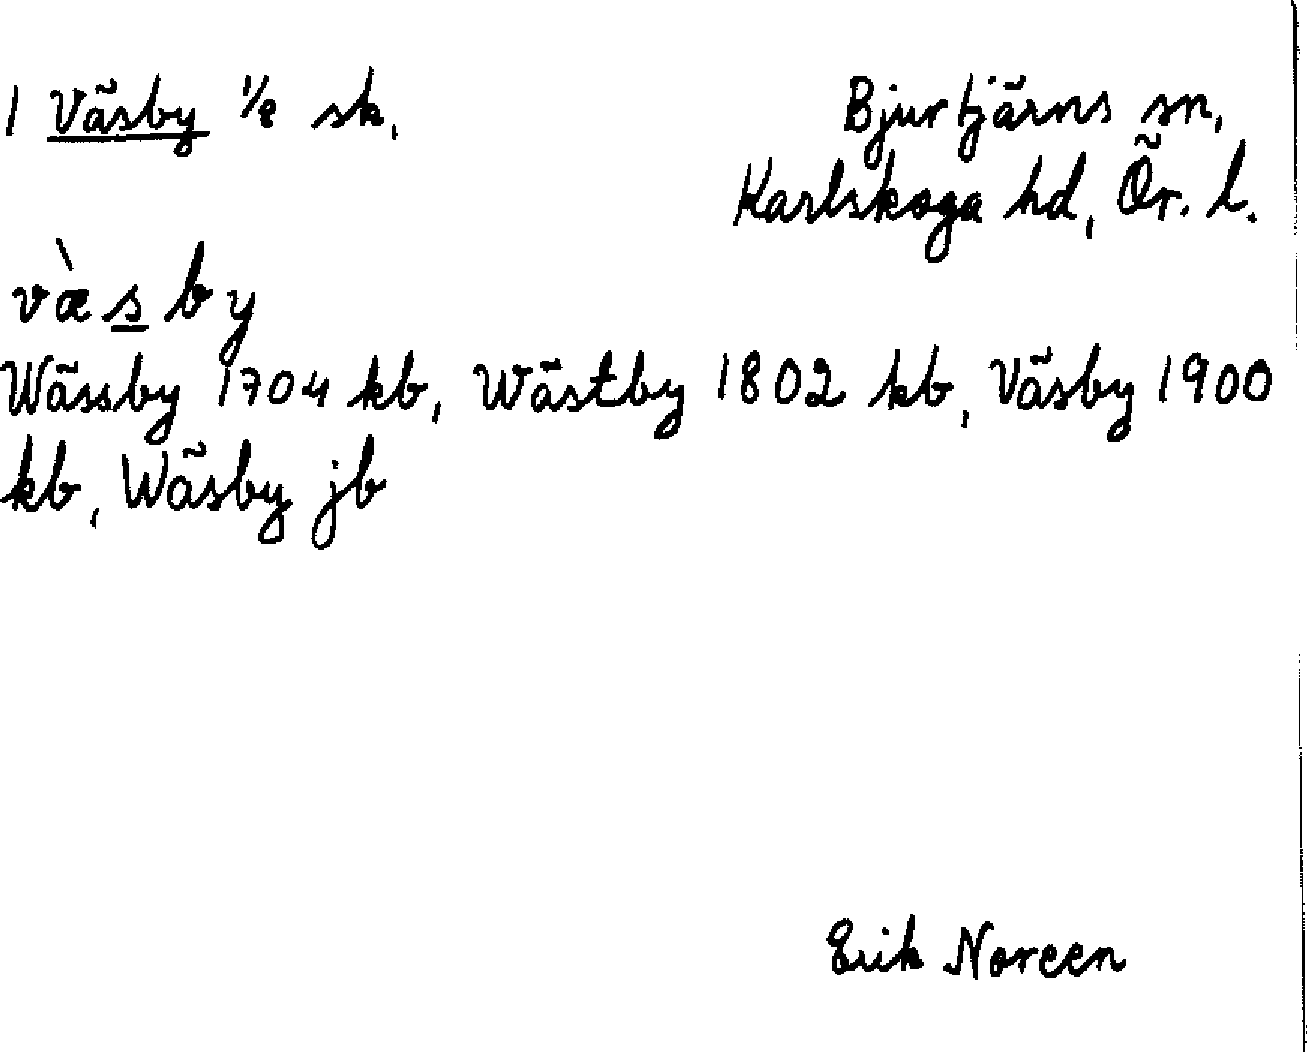 1 Väsby 1/2 sk. Bjurtjärns sn,
Karlskoga hd, Ör. l.
væ̀sby
Wässby 1704 kb, Wästby 1802 kb, Väsby 1900
kb, Wäsby jb
Erik Noreen